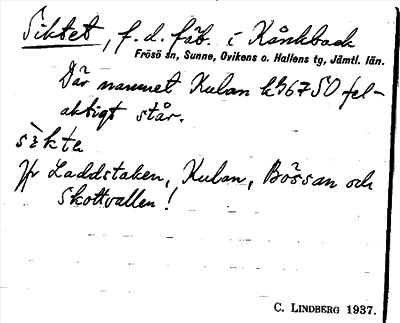 Siktet, f. d. fäb. i Kånkback
Frösö sn, Sunne, Ovikens o. Hallens tg, Jämtl. län.
Där namnet Kulan k46750 fel-
aktigt står.
sikte
Jfr Laddstaken, Kulan, Bössan och
Skottvallen!
C. LINDBERG 1937.